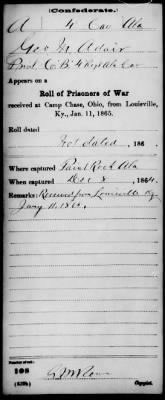 (Confederate.)
A 4 Cav Ala
Geo M Adair
Pvt Co B 4 Reg't Ala Cav
Appears on a
Roll of Prisoners of War
received at Camp Chase, Ohio, from Louisville,
Ky., Jan. 11, 1865.
Roll dated
Not dated, 186 .
Where captured Paint Rock Ala
When captured Dec 8, 1864.
Remarks: Received from Louisville Ky
Jany 11. 1865.
Number of roll:
108
Copyist.